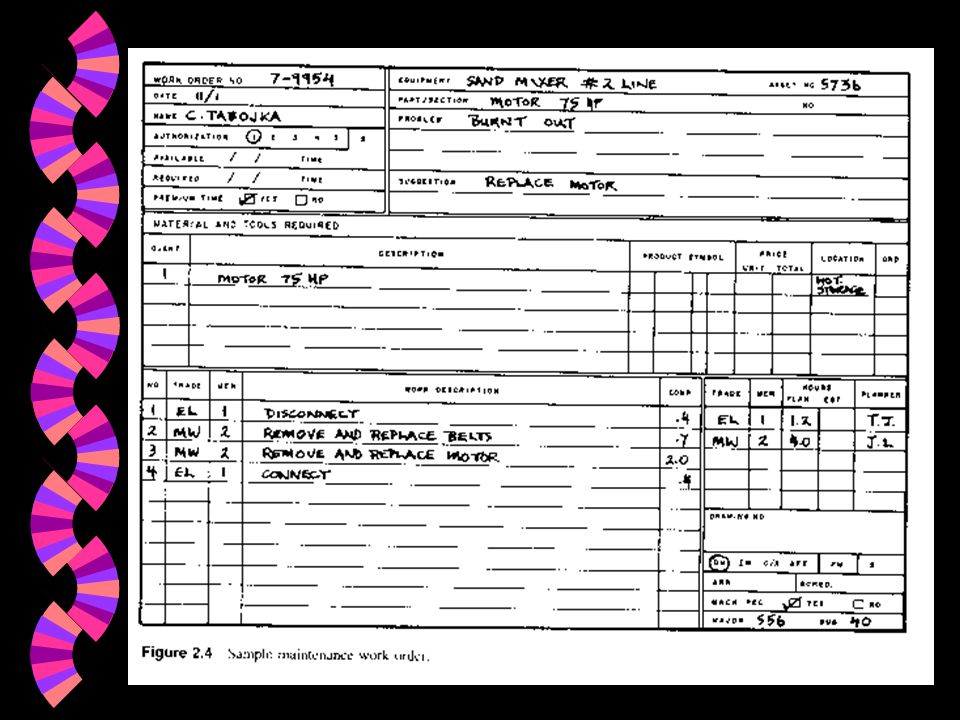 WORK ORDER NO 7-9954
DATE 11/1
NAME C. TABOJKA
AUTHORIZATION 1 2 3 4 5
AVAILABLE / / TIME
REQUIRED / / TIME
PREMIUM TIME YES NO
EQUIPMENT SAND MIXER #2 LINE ASSET NO 5736
PART/SECTION MOTOR 75 HP NO
PROBLEM BURNT OUT
SUGGESTION REPLACE MOTOR
MATERIAL AND TOOLS REQUIRED
QUANT DESCRIPTION PRODUCT SYMBOL PRICE LOCATION ORD
UNIT TOTAL
1 MOTOR 75 HP MOT. STORAGE
NO TRADE MEN WORK DESCRIPTION COMP
1 EL 1 DISCONNECT .4
2 MW 2 REMOVE AND REPLACE BELTS .7
3 MW 2 REMOVE AND REPLACE MOTOR 2.0
4 EL 1 CONNECT
TRADE MEN HOURS PLANNER
PLAN
EL 1 1.2 T.J.
MW 2 J.L
DRAWING NO
DM
ARR SCHED.
MACH REC YES NO
MAJOR 556 40
Figure 2.4 Sample maintenance work order.